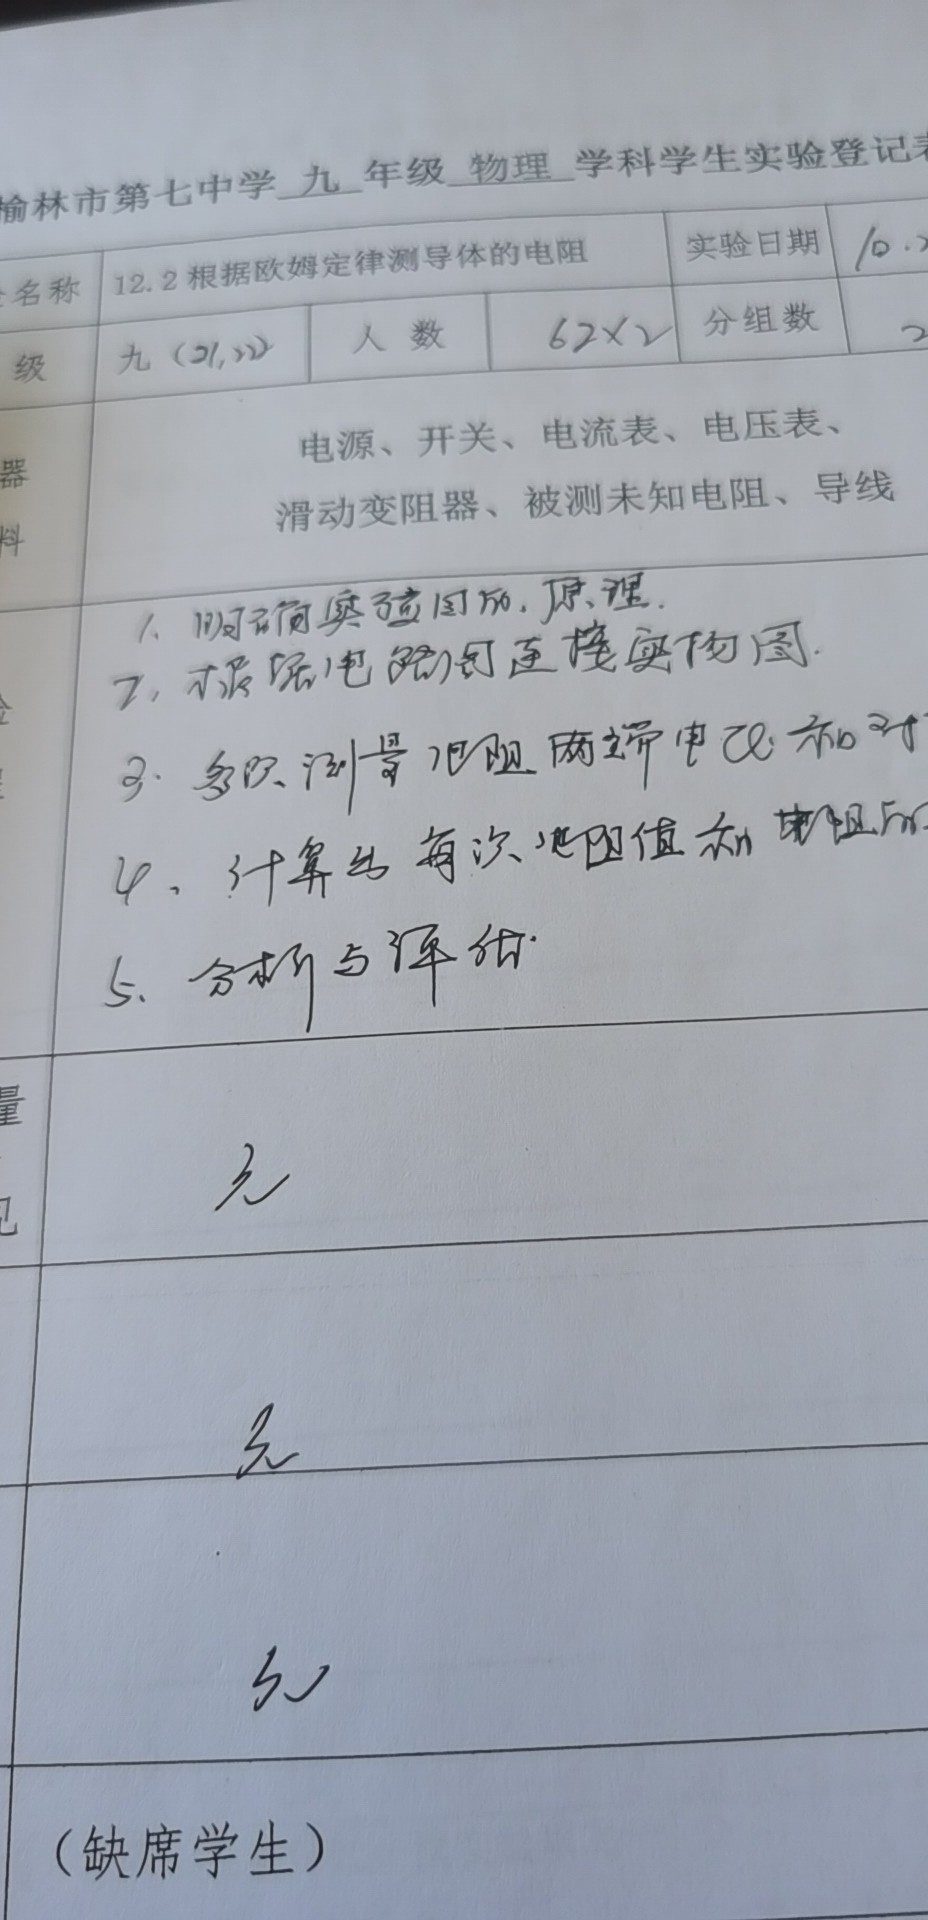 榆林市第七中学 九 年级 物理 学科学生实验登记表
名称 12.2根据欧姆定律测导体的电阻 实验日期 10.2
级 九（21,22） 人数 62×2 分组数 2
器 电源、开关、电流表、电压表、
料 滑动变阻器、被测未知电阻、导线
1、明确实验目的、原理.
2、根据电路图连接实物图.
3. 多次测量电阻两端电压和对
4、计算出每次电阻值和电阻的
5、分析与评估.
量
见
无
无
无
（缺席学生）